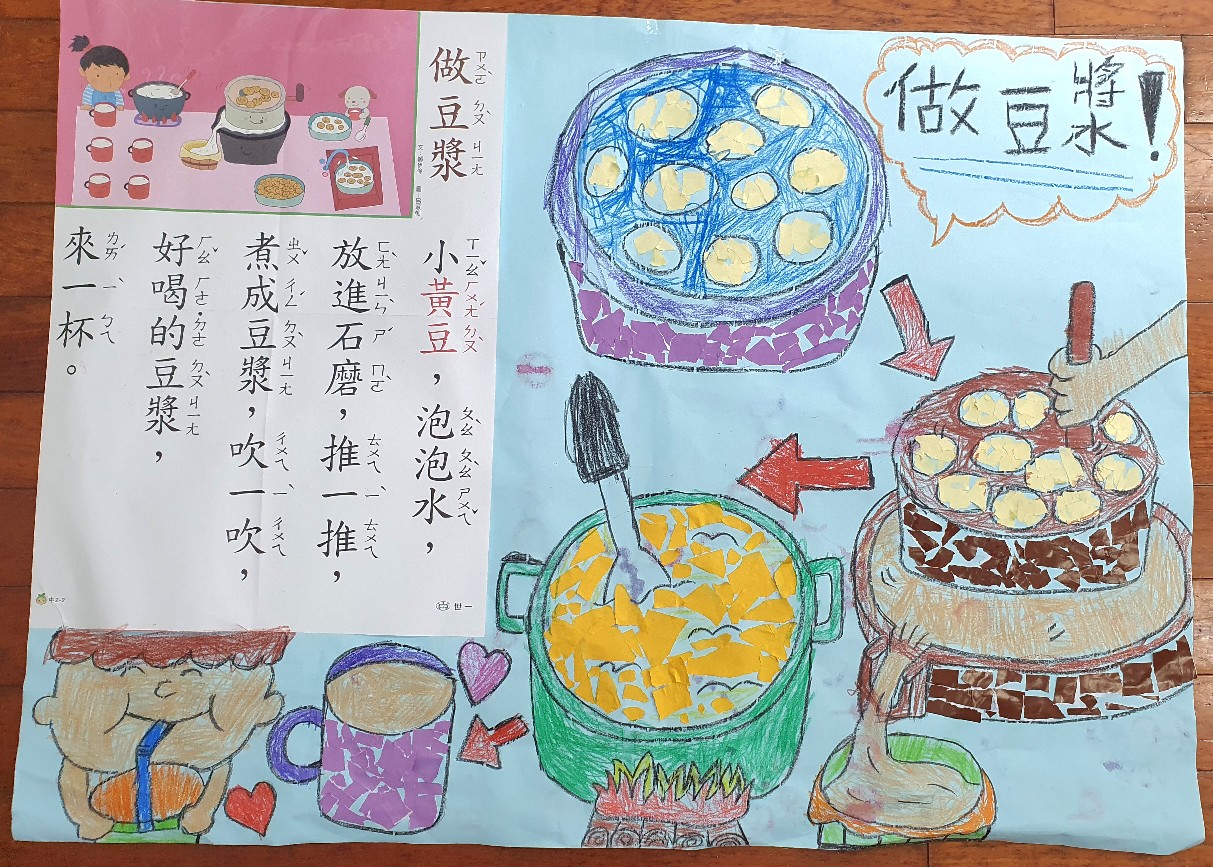 做豆漿
小黃豆，泡泡水，
放進石磨，推一推，
煮成豆漿，吹一吹，
好喝的豆漿，
來一杯。
世一
做豆漿！